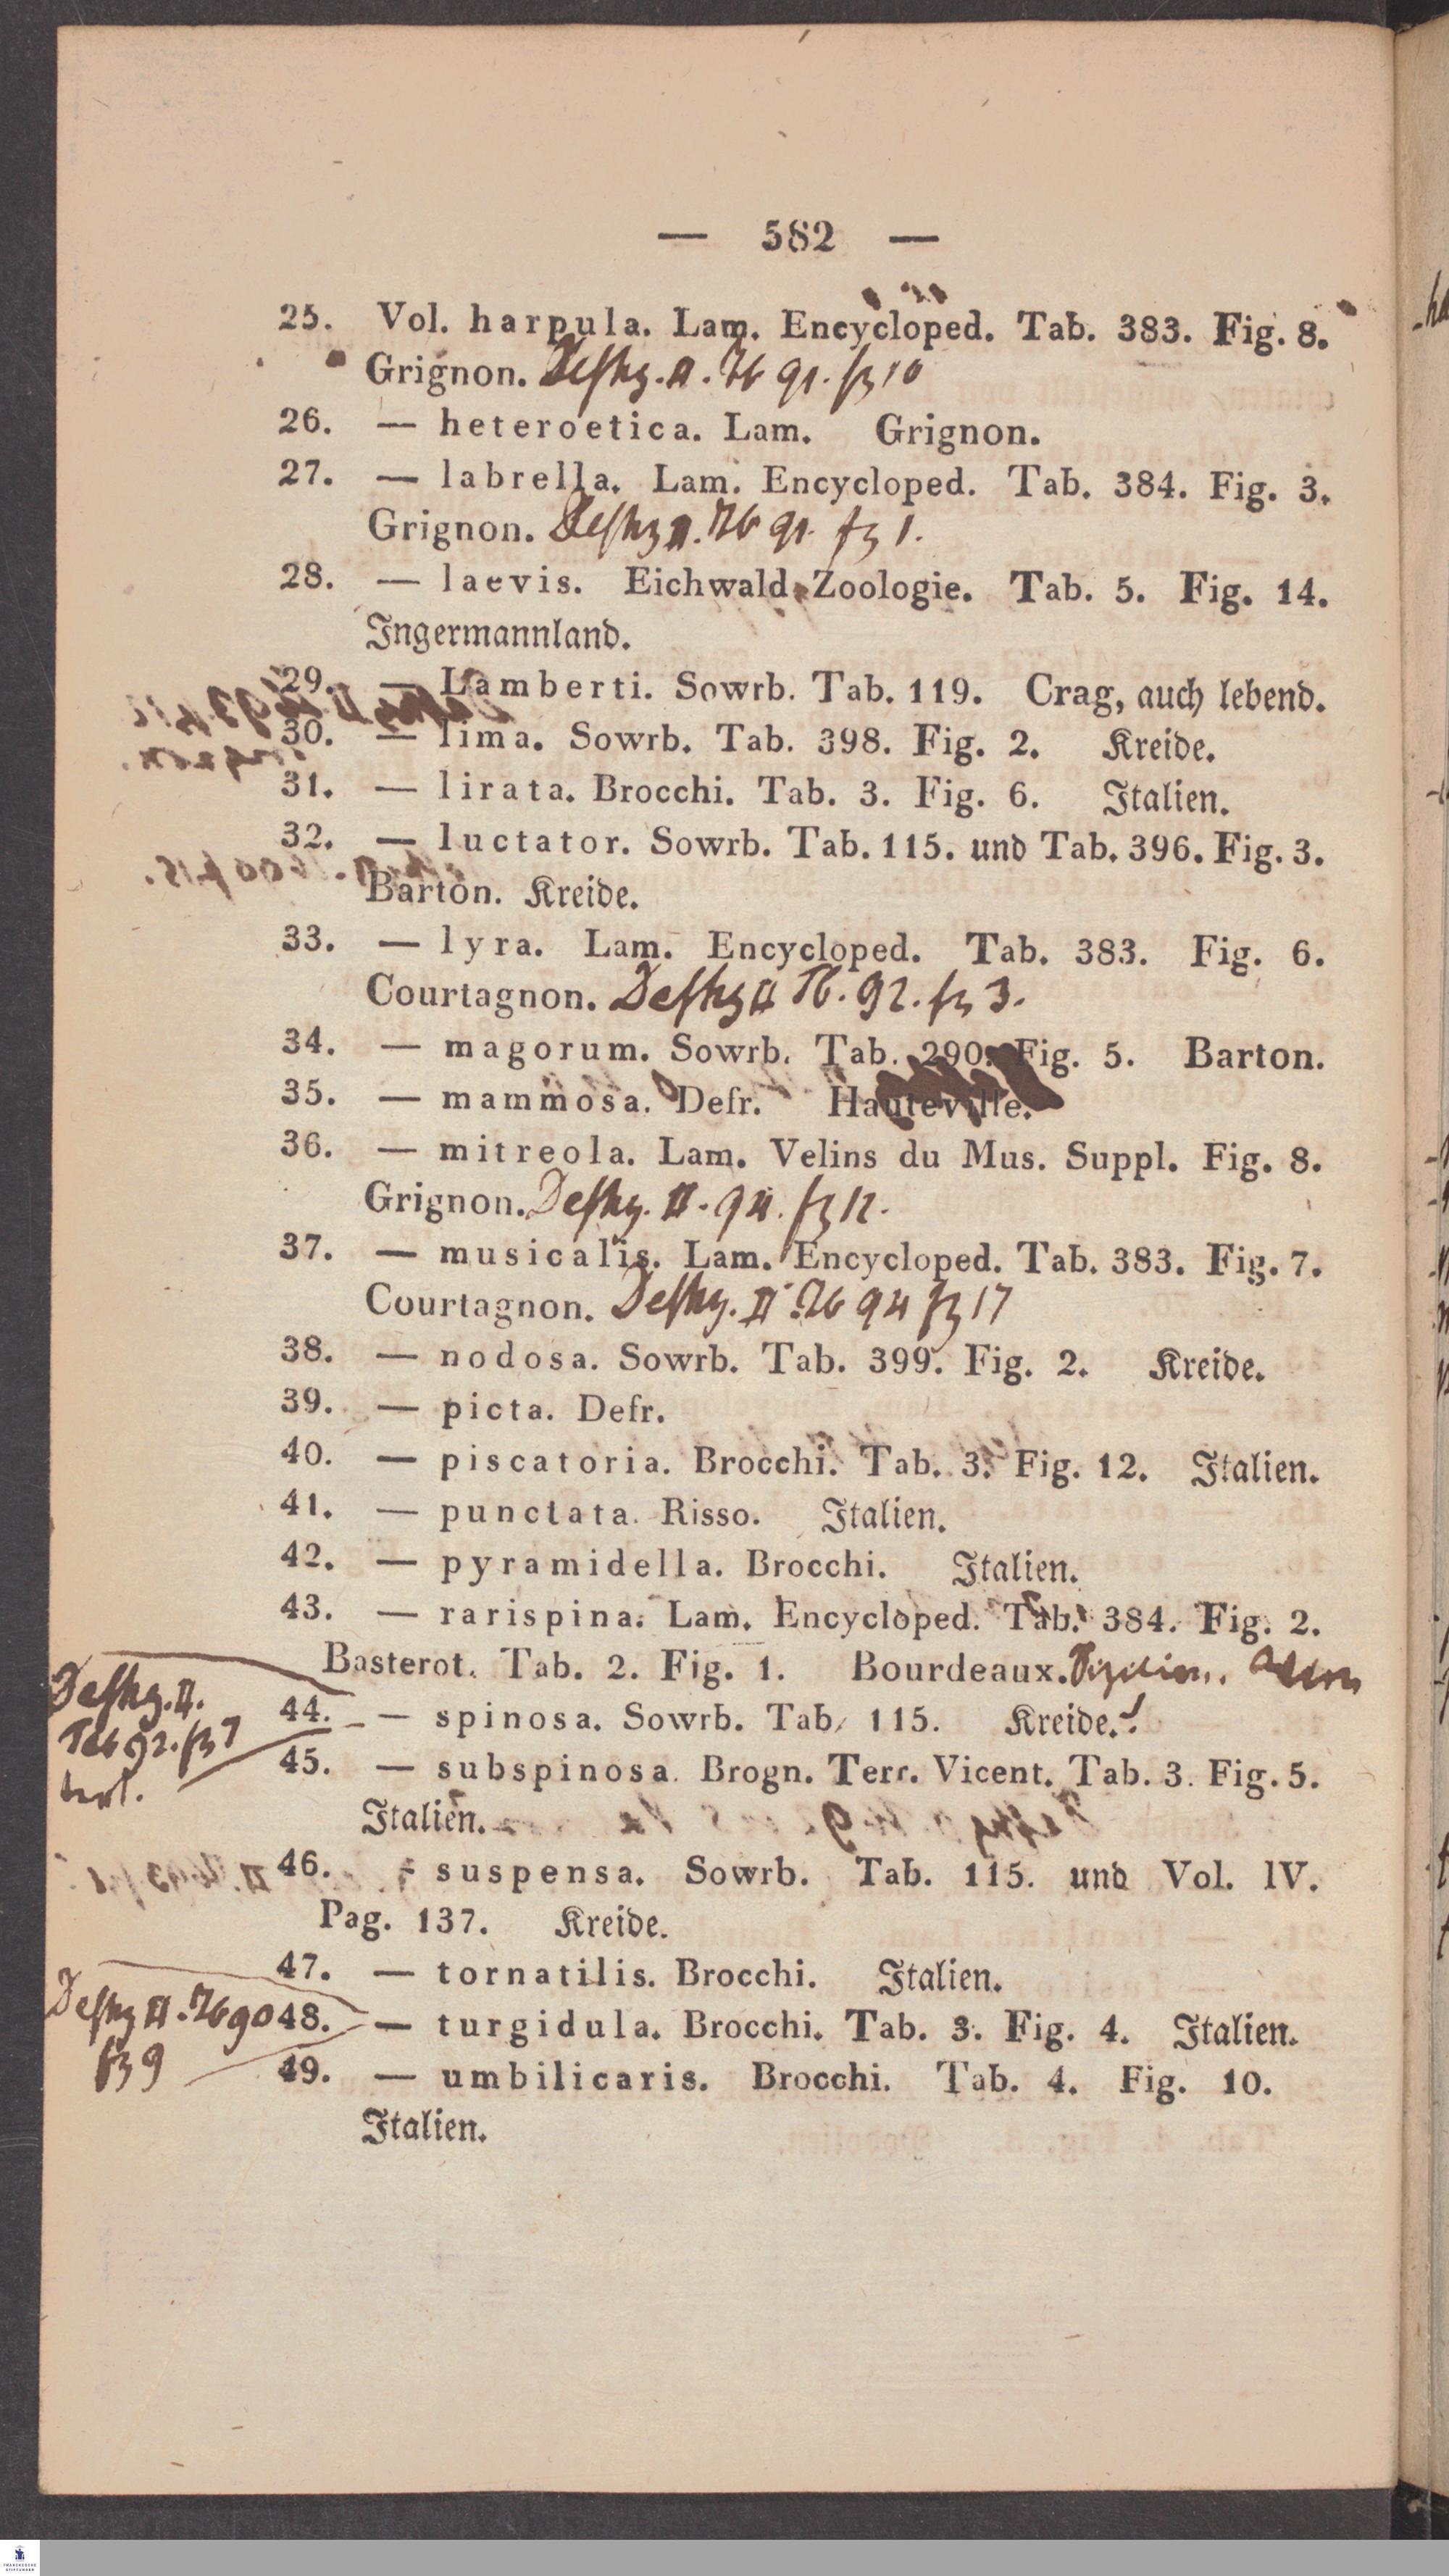 — 582 —
25. Vol. harpula. Lam. Encycloped. Tab. 383. Fig. 8.
Grignon. Deshy. II. Tb 91. fg 10
26. — heteroetica. Lam. Grignon.
27. — labrella. Lam. Encycloped. Tab. 384. Fig. 3.
Grignon. Deshy II. Tb 91. fg 1.
28. — laevis. Eichwald Zoologie. Tab. 5. Fig. 14.
Ingermannland.
29. — Lamberti. Sowrb. Tab. 119. Crag, auch lebend.
30. — lima. Sowrb. Tab. 398. Fig. 2. Kreide.
31. — lirata. Brocchi. Tab. 3. Fig. 6. Italien.
32. — luctator. Sowrb. Tab. 115. und Tab. 396. Fig. 3.
Barton. Kreide.
33. — lyra. Lam. Encycloped. Tab. 383. Fig. 6.
Courtagnon. Deshy II Tb. 92. fg 3.
34. — magorum. Sowrb. Tab. 290. Fig. 5. Barton.
35. — mammosa. Defr. Hauteville.
36. — mitreola. Lam. Velins du Mus. Suppl. Fig. 8.
Grignon. Deshy. II. 94. fg 12.
37. — musicalis. Lam. Encycloped. Tab. 383. Fig. 7.
Courtagnon. Deshy. II. Tb 94 fg 17
38. — nodosa. Sowrb. Tab. 399. Fig. 2. Kreide.
39. — picta. Defr.
40. — piscatoria. Brocchi. Tab. 3. Fig. 12. Italien.
41. — punctata. Risso. Italien.
42. — pyramidella. Brocchi. Italien.
43. — rarispina. Lam. Encycloped. Tab. 384. Fig. 2.
Basterot. Tab. 2. Fig. 1. Bourdeaux.
Deshy. II.
Tab 92. fg 7
44. — spinosa. Sowrb. Tab. 115. Kreide.
45. — subspinosa. Brogn. Terr. Vicent. Tab. 3. Fig. 5.
Italien.
46. — suspensa. Sowrb. Tab. 115. und Vol. IV.
Pag. 137. Kreide.
47. — tornatilis. Brocchi. Italien.
Deshy II. Tb 90
fg 9
48. — turgidula. Brocchi. Tab. 3. Fig. 4. Italien.
49. — umbilicaris. Brocchi. Tab. 4. Fig. 10.
Italien.
FRANCKESCHE
STIFTUNGEN